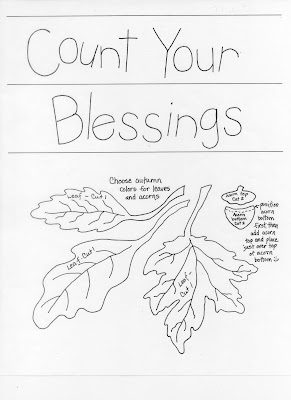 Count Your
Blessings
Choose autumn
colors for leaves
and acorns
Leaf - Cut 1
Leaf Cut 1
Leaf -
Cut 1
Acorn top
Cut 2
Acorn
bottom
Cut 2
position
acorn
bottom
first, then
add acorn
top and place
just over top
of acorn
bottom